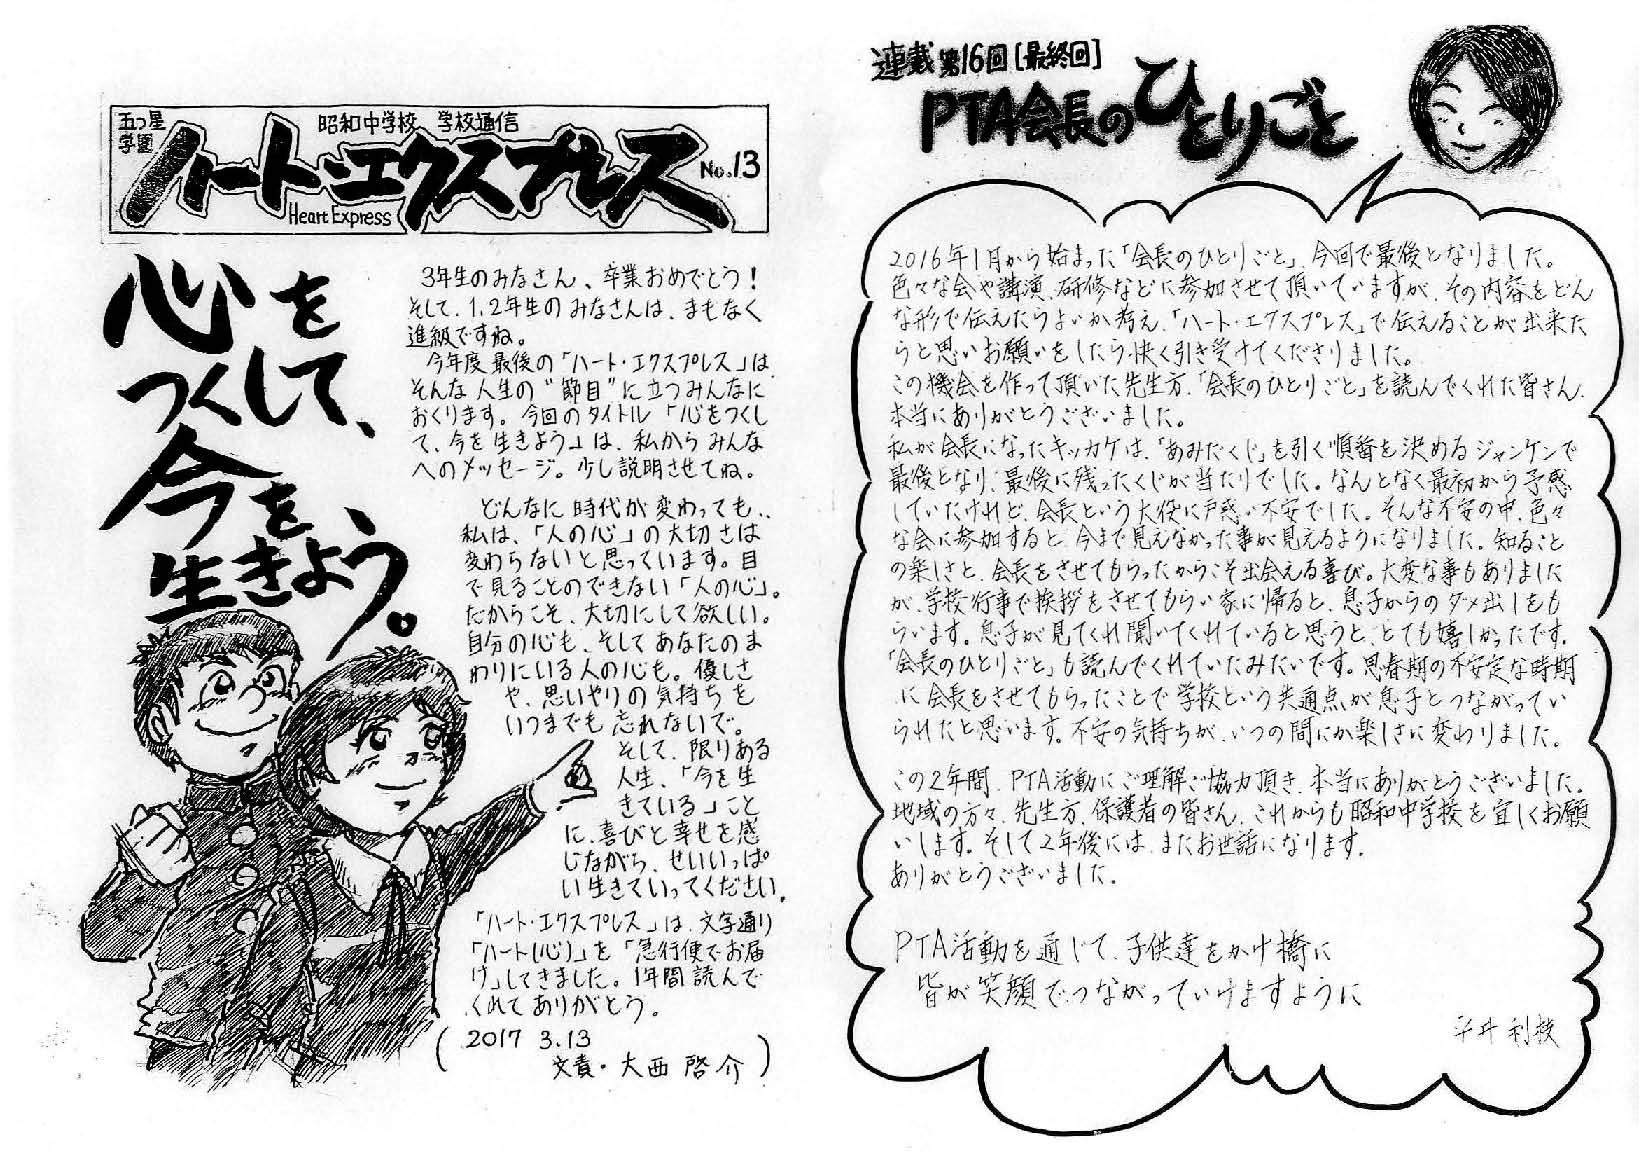 五つ星
学園
昭和中学校 学校通信
ハート・エクスプレス
No.13
Heart Express
心を
つくして、
今を
生きよう。
3年生のみなさん、卒業おめでとう!
そして、1,2年生のみなさんは、まもなく
進級ですね。
今年度最後の「ハート・エクスプレス」は、
そんな人生の“節目”に立つみんなに
おくります。今回のタイトル「心をつくし
て、今を生きよう」は、私からみんな
へのメッセージ。少し説明させてね。
どんなに時代が変わっても、
私は、「人の心」の大切さは
変わらないと思っています。目
で見ることのできない「人の心」。
だからこそ、大切にして欲しい。
自分の心も、そしてあなたのま
わりにいる人の心も。優しさ
や、思いやりの気持ちを
いつまでも忘れないで。
そして、限りある
人生、「今を生
きている」こと
に、喜びと幸せを感
じながら、せいいっぱ
い生きていってください。
「ハート・エクスプレス」は、文字通り
「ハート(心)」を「急行便でお届
け」してきました。1年間読んで
くれてありがとう。
(2017 3.13
文責・大西啓介)
連載第16回[最終回]
PTA会長のひとりごと
2016年1月から始まった「会長のひとりごと」、今回で最後となりました。
色々な会や講演、研修などに参加させて頂いていますが、その内容をどん
な形で伝えたらよいか考え、「ハート・エクスプレス」で伝えることが出来た
らと思いお願いをしたら、快く引き受けてくださりました。
この機会を作って頂いた先生方、「会長のひとりごと」を読んでくれた皆さん、
本当にありがとうございました。
私が会長になったキッカケは、「あみだくじ」を引く順番を決めるジャンケンで
最後となり、最後に残ったくじが当たりでした。なんとなく最初から予感
していたけれど、会長という大役に戸惑い不安でした。そんな不安の中、色々
な会に参加すると、今まで見えなかった事が見えるようになりました。知ること
の楽しさと、会長をさせてもらったからこそ出会える喜び。大変な事もありました
が、学校行事で挨拶をさせてもらい家に帰ると、息子からのダメ出しをも
らいます。息子が見てくれ聞いてくれていると思うと、とても嬉しかったです。
「会長のひとりごと」も読んでくれていたみたいです。思春期の不安定な時期
に会長をさせてもらったことで学校という共通点が息子とつながってい
られたと思います。不安の気持ちが、いつの間にか楽しさに変わりました。
この2年間、PTA活動にご理解ご協力頂き、本当にありがとうございました。
地域の方々、先生方、保護者の皆さん、これからも昭和中学校を宜しくお願
いします。そして2年後には、またお世話になります。
ありがとうございました。
PTA活動を通じて、子供達をかけ橋に
皆が笑顔でつながっていけますように
平井利枝